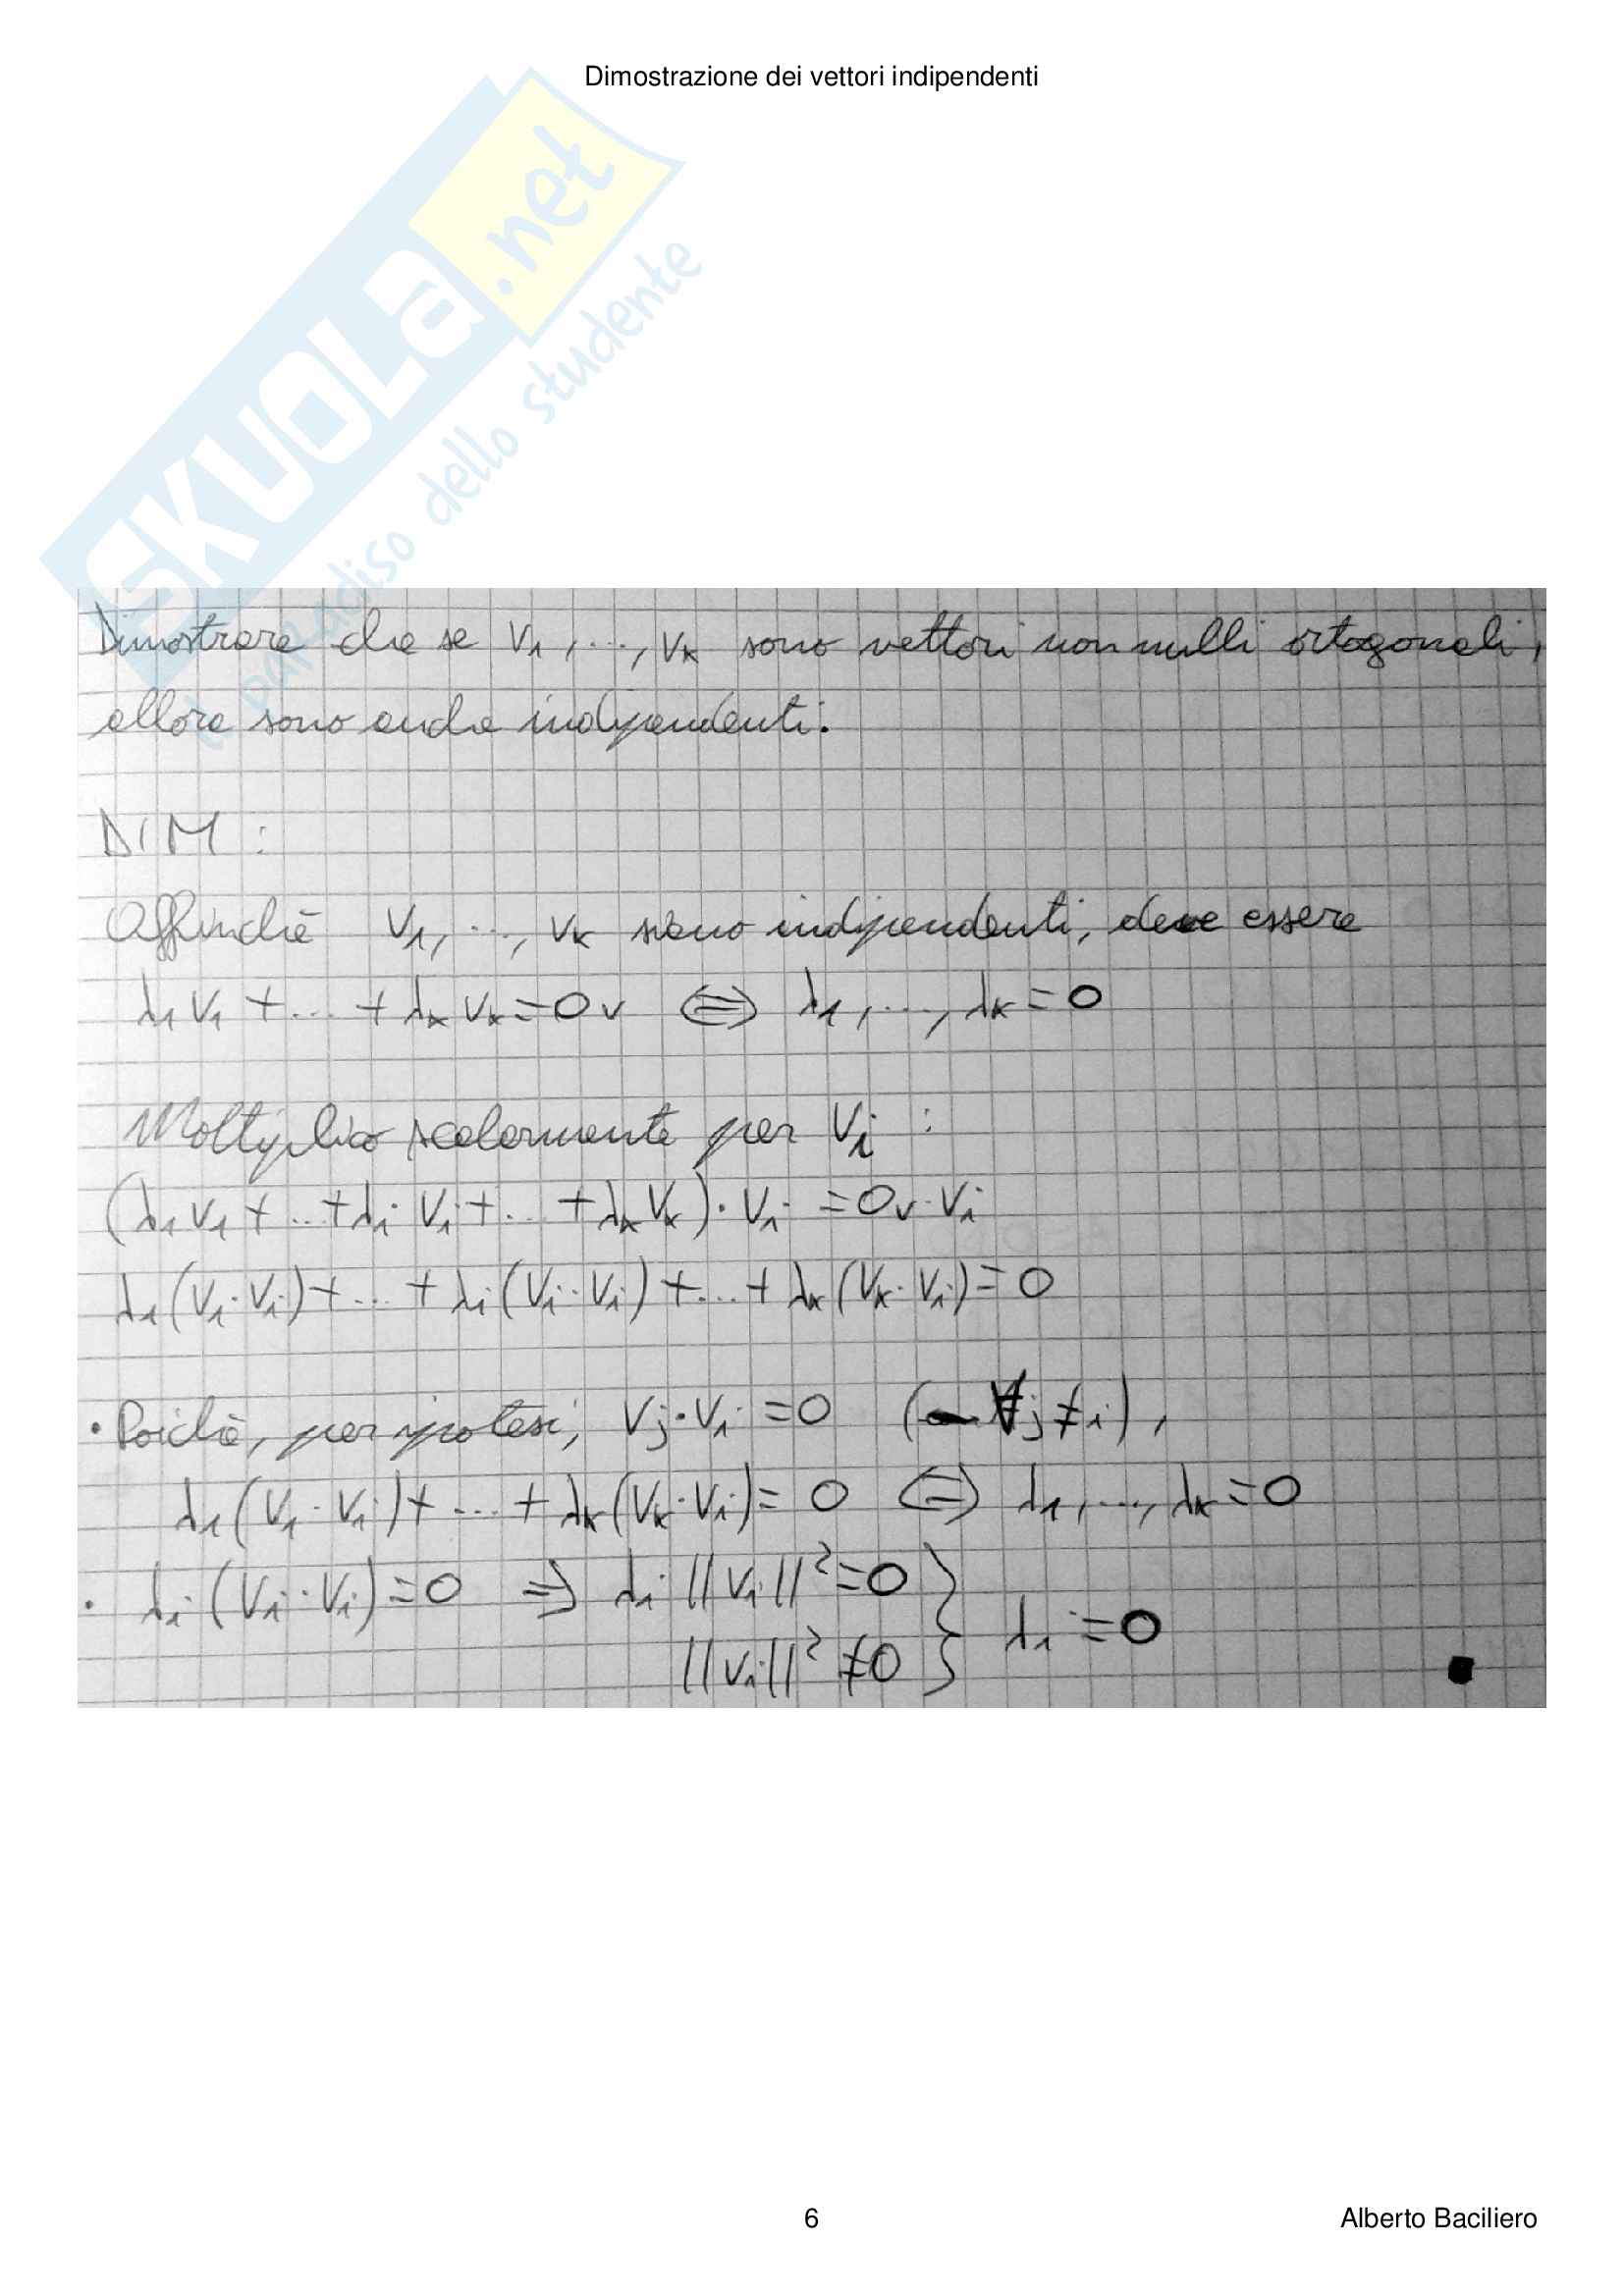 Dimostrazione dei vettori indipendenti
SKUOLA.net
il paradiso dello studente
Dimostrare che se v₁, ..., vₖ sono vettori non nulli ortogonali,
allora sono anche indipendenti.
DIM:
Affinchè v₁, ..., vₖ siano indipendenti, deve essere
λ₁v₁ + ... + λₖvₖ = 0ᵥ ⇔ λ₁, ..., λₖ = 0
Moltiplico scalarmente per vᵢ :
(λ₁v₁ + ... + λᵢvᵢ + ... + λₖvₖ)·vᵢ = 0ᵥ·vᵢ
λ₁(v₁·vᵢ) + ... + λᵢ(vᵢ·vᵢ) + ... + λₖ(vₖ·vᵢ) = 0
• Poichè, per ipotesi, vⱼ·vᵢ = 0 (∀j≠i),
λ₁(v₁·vᵢ) + ... + λₖ(vₖ·vᵢ) = 0 ⇔ λ₁, ..., λₖ = 0
• λᵢ(vᵢ·vᵢ) = 0 ⇒ λᵢ||vᵢ||² = 0 } λᵢ = 0
||vᵢ||² ≠ 0
6
Alberto Baciliero